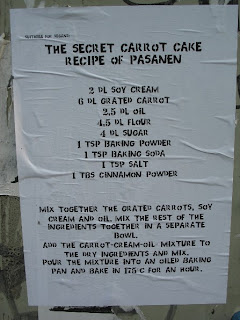 SUITABLE FOR VEGANS!
THE SECRET CARROT CAKE
RECIPE OF PASANEN
2 DL SOY CREAM
6 DL GRATED CARROT
2,5 DL OIL
4,5 DL FLOUR
4 DL SUGAR
1 TSP BAKING POWDER
1 TSP BAKING SODA
1 TSP SALT
1 TBS CINNAMON POWDER
MIX TOGETHER THE GRATED CARROTS, SOY
CREAM AND OIL. MIX THE REST OF THE
INGREDIENTS TOGETHER IN A SEPARATE
BOWL.
ADD THE CARROT-CREAM-OIL MIXTURE TO
THE DRY INGREDIENTS AND MIX.
POUR THE MIXTURE INTO AN OILED BAKING
PAN AND BAKE IN 175 C FOR AN HOUR.